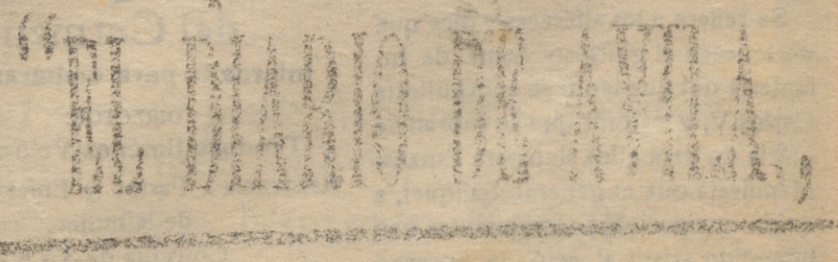 “EL DIARIO DE AVILA,